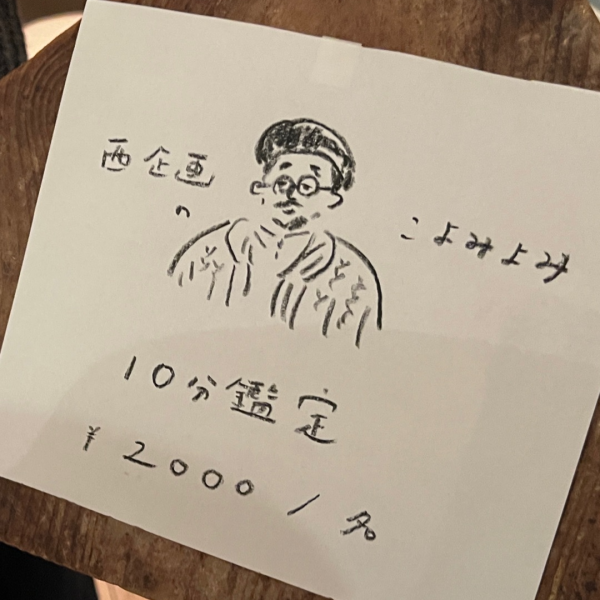 西企画
の
こよみよみ
10分鑑定
¥2000/名